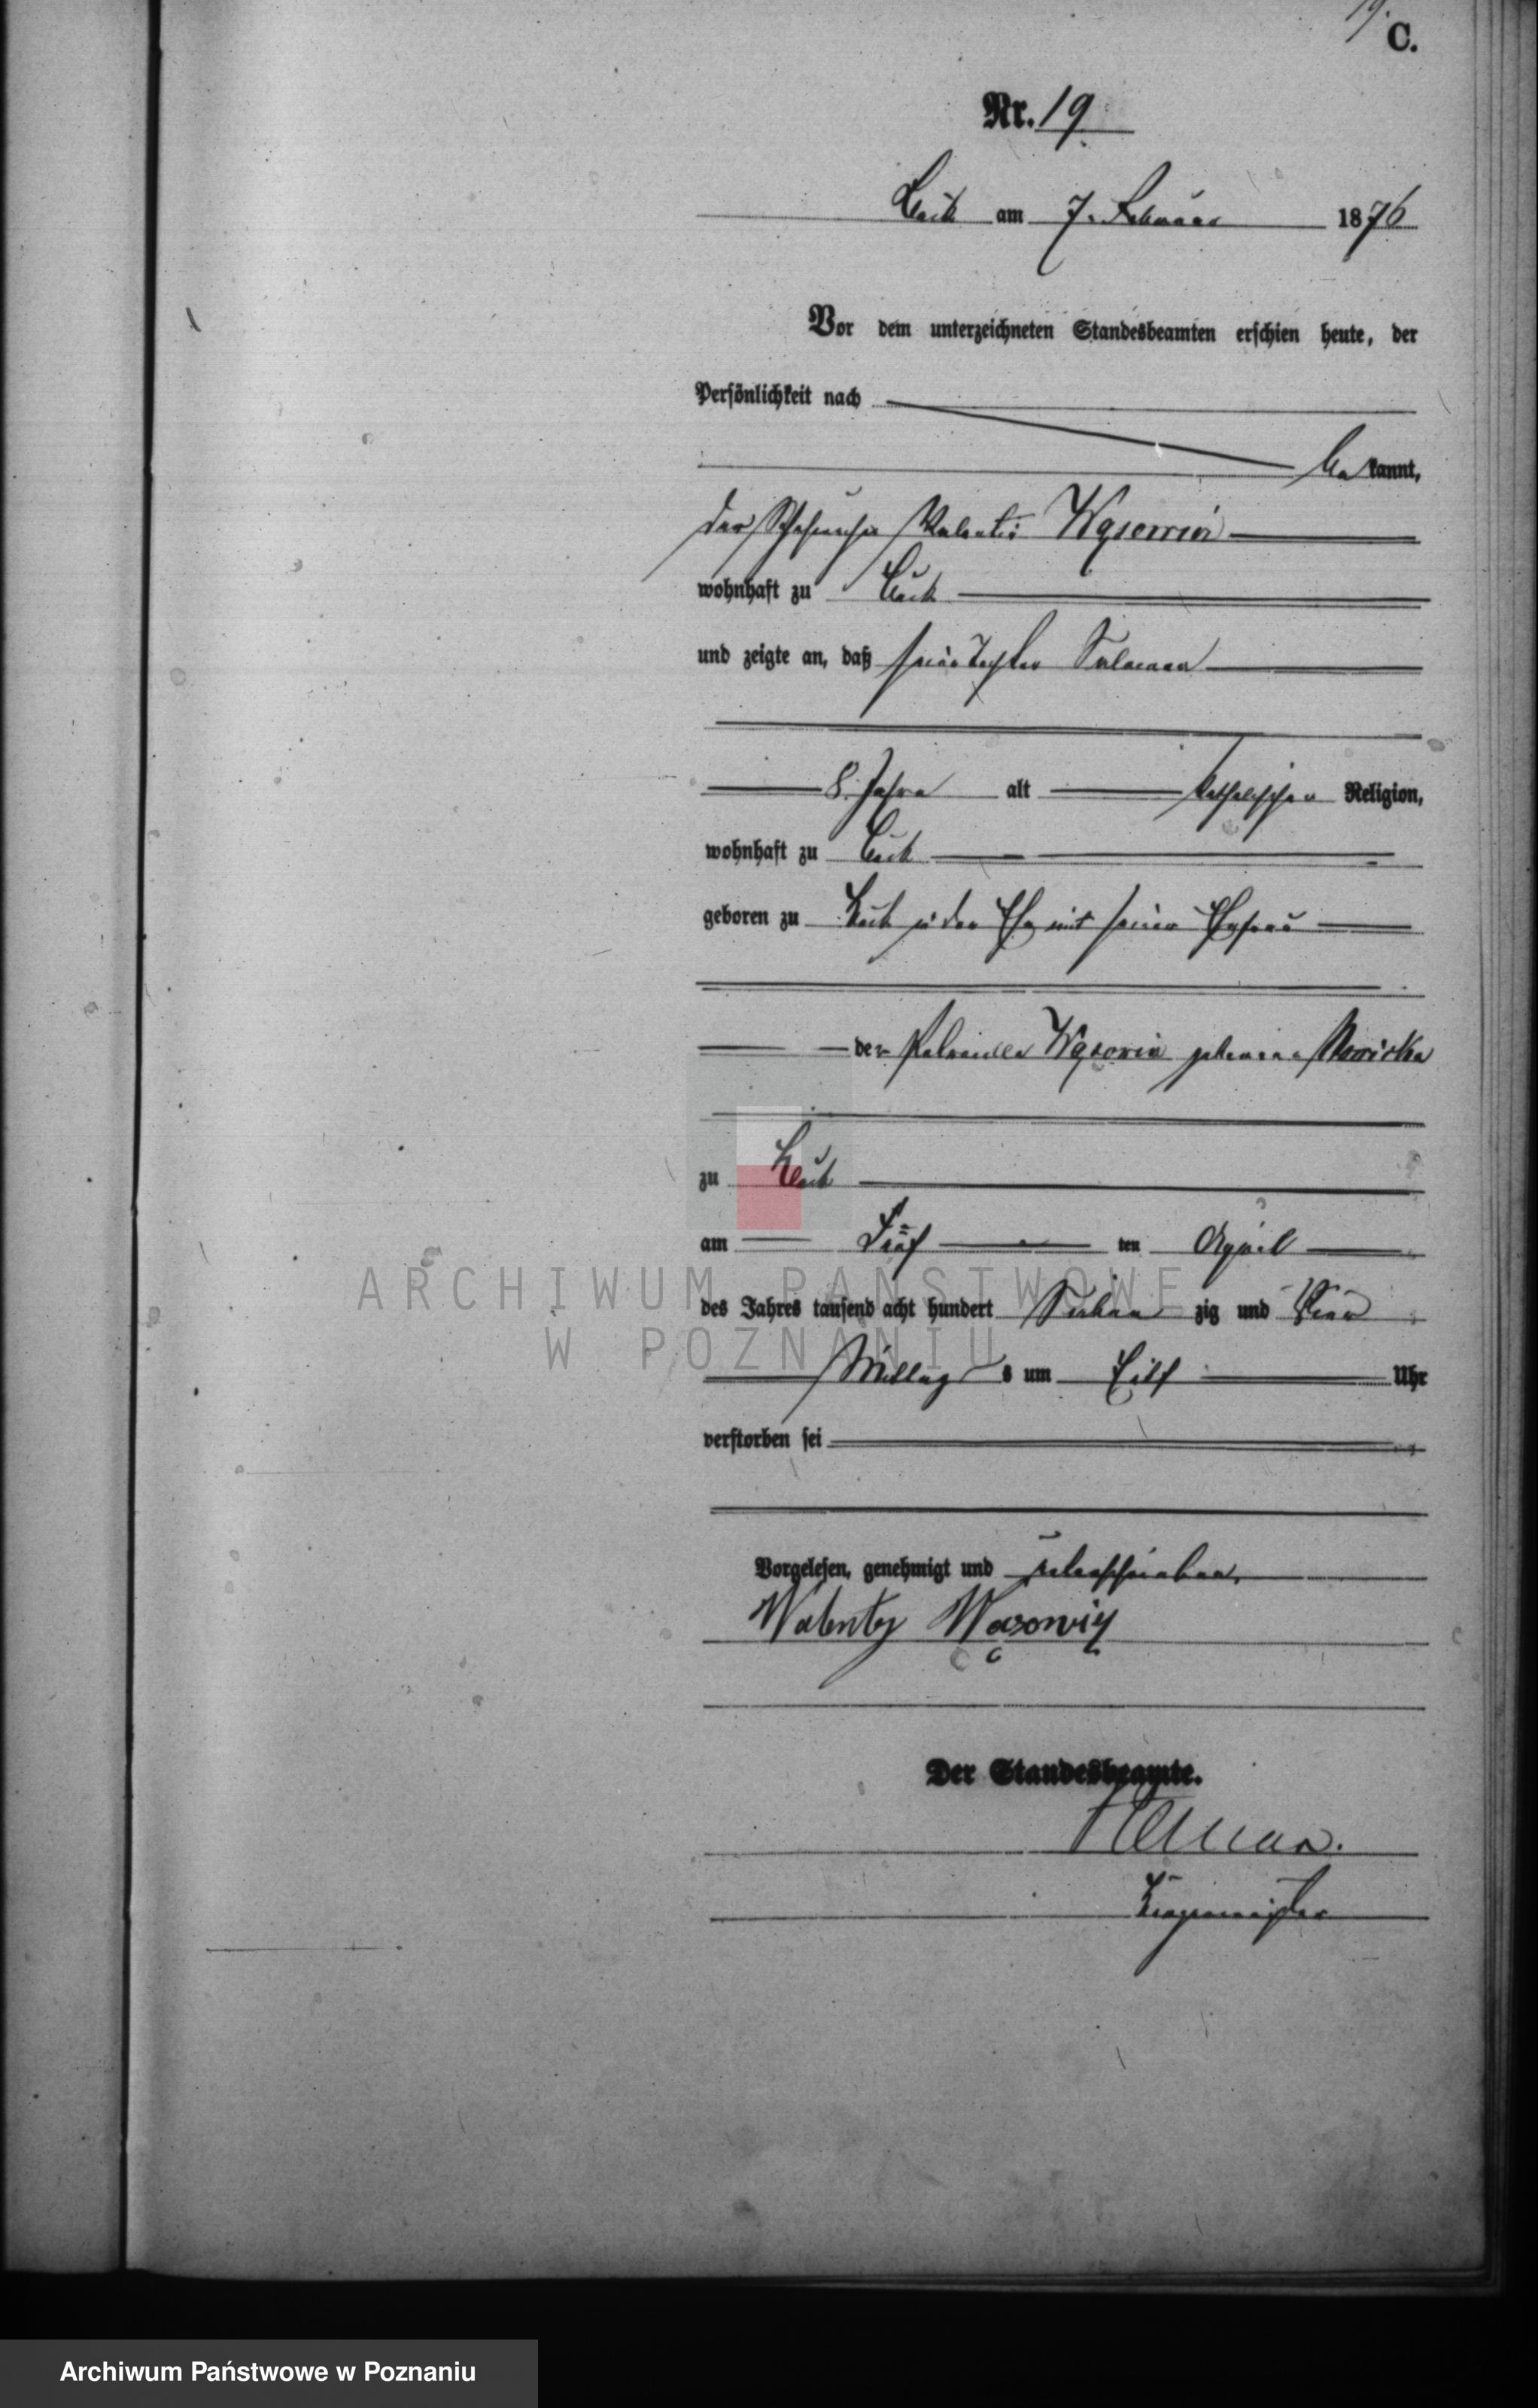 19.
C.
Nr. 19
Buk am 7. Februar 1876
Vor dem unterzeichneten Standesbeamten erschien heute, der
Persönlichkeit nach
bekannt,
der Valentin Wąsowicz
wohnhaft zu Buk
und zeigte an, daß seine Tochter
8 Jahre alt katholischer Religion,
wohnhaft zu Buk
geboren zu Buk in der Ehe mit seiner Ehefrau
der Wąsowicz geborene Nowicka
zu Buk
am fünf ten April
des Jahres tausend acht hundert Sieben zig und Vier
Mittag s um Eilf Uhr
verstorben sei
Vorgelesen, genehmigt und unterschrieben.
Walenty Wąsowicz
Der Standesbeamte.
Bürgermeister
ARCHIWUM PAŃSTWOWE
W POZNANIU
Archiwum Państwowe w Poznaniu